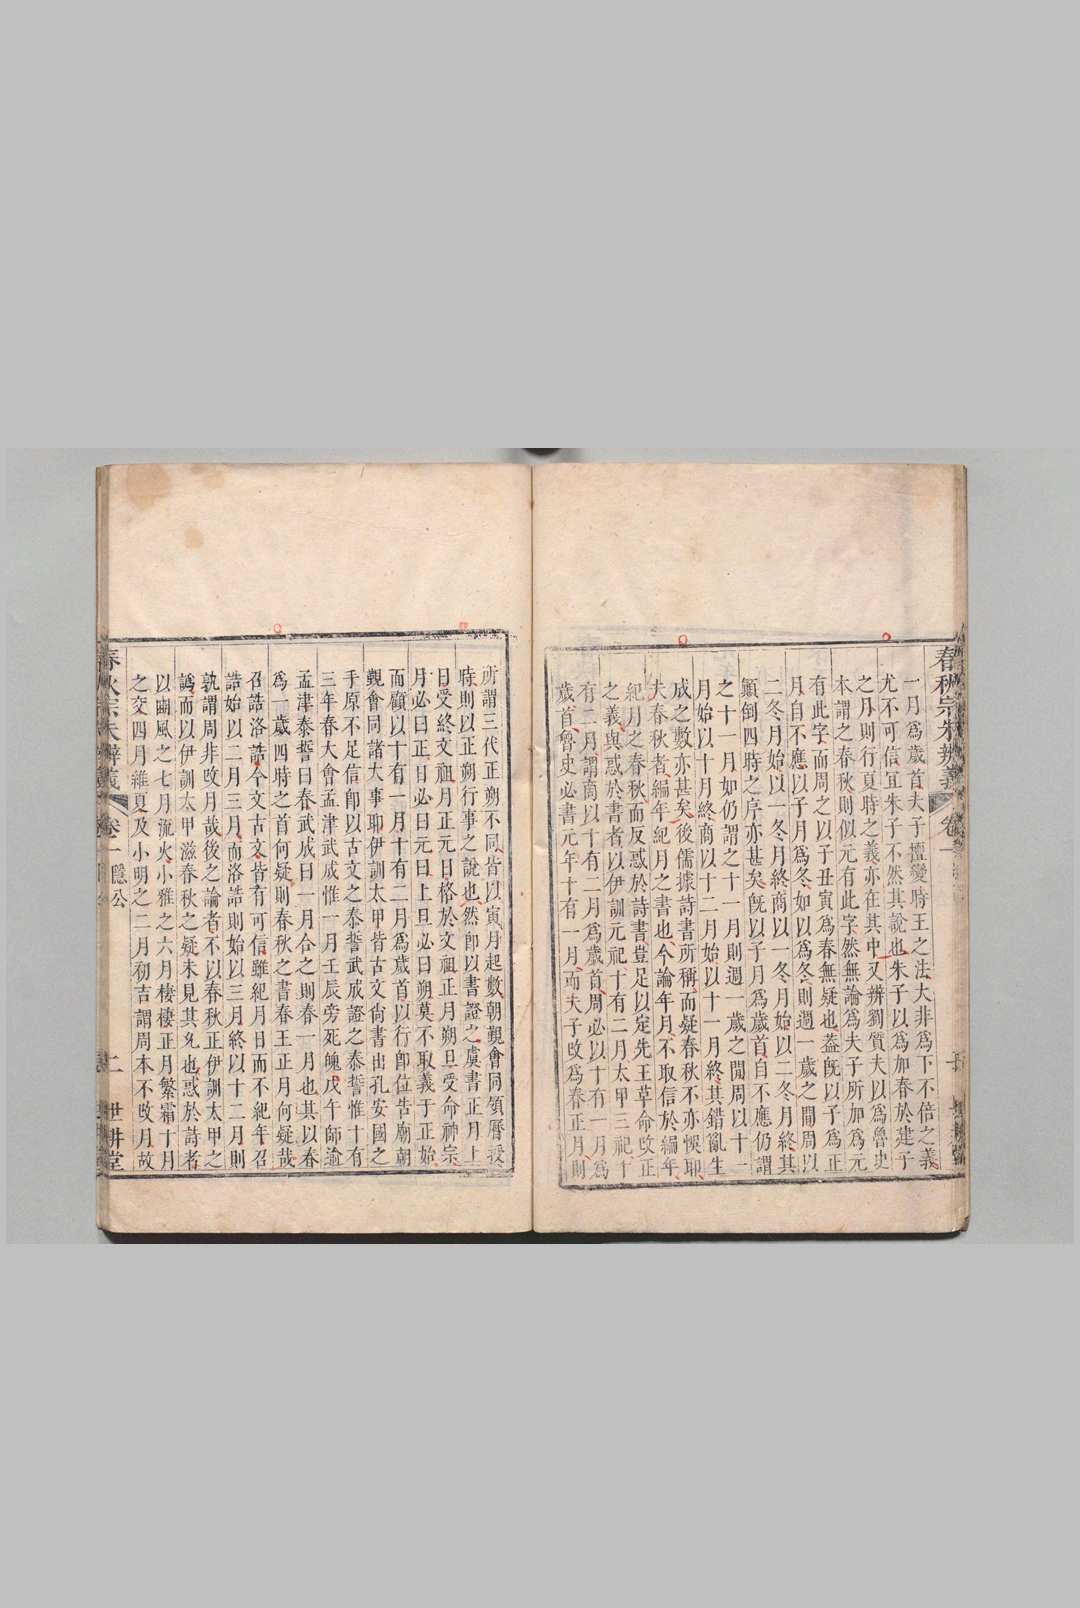 一月爲歲首夫子擅變時王之法大非爲下不倍之義
尤不可信宜朱子不然其說也朱子以爲加春於建子
之月則行夏時之義亦在其中又辨劉質夫以爲魯史
本謂之春秋則似元有此字然無論爲夫子所加爲元
有此字而周之以子丑寅爲春無疑也蓋旣以子爲正
月自不應以子月爲冬如以爲冬則週一歲之間周以
二冬月始以一冬月終商以一冬月始以二冬月終其
顚倒四時之序亦甚矣旣以子月爲歲首自不應仍謂
之十一月如仍謂之十一月則週一歲之間周以十一
月始以十月終商以十二月始以十一月終其錯亂生
成之數亦甚矣後儒據詩書所稱而疑春秋不亦悞耶
夫春秋者編年紀月之書也今論年月不取信於編年
紀月之春秋而反惑於詩書豈足以定先王革命改正
之義與惑於書者以伊訓元祀十有二月太甲三祀十
有二月謂商以十有二月爲歲首周必以十有一月爲
歲首魯史必書元年十有一月而夫子改爲春正月則
春秋宗朱辨義
卷一
所謂三代正朔不同皆以寅月起數朝覲會同頒曆授
時則以正朔行事之說也然卽以書證之虞書正月上
日受終文祖月正元日格於文祖正月朔旦受命神宗
月必曰正日必曰元曰上旦必曰朔莫不取義于正始
而顧以十有一月十有二月爲歲首以行卽位告廟朝
覲會同諸大事耶伊訓太甲皆古文尙書出孔安國之
手原不足信卽以古文之泰誓武成證之泰誓惟十有
三年春大會孟津武成惟一月壬辰旁死魄戊午師逾
孟津泰誓曰春武成曰一月合之則春一月也其以春
爲一歲四時之首何疑則春秋之書春王正月何疑哉
召誥洛誥今文古文皆有可信雖紀月日而不紀年召
誥始以二月三月而洛誥則始以三月終以十二月則
孰謂周非改月哉後之論者不以春秋正伊訓太甲之
譌而以伊訓太甲滋春秋之疑未見其允也惑於詩者
以豳風之七月流火小雅之六月棲棲正月繁霜十月
之交四月維夏及小明之二月初吉謂周本不改月故
春秋宗朱辨義
卷一
隱公
二
世耕堂